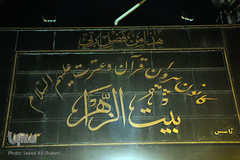 هذا من فضل ربی
کانون پیروان قرآن و عترت علیهم السلام
بیت الزهرا
تاسیس
Photo: Seyed Ali Shakeri